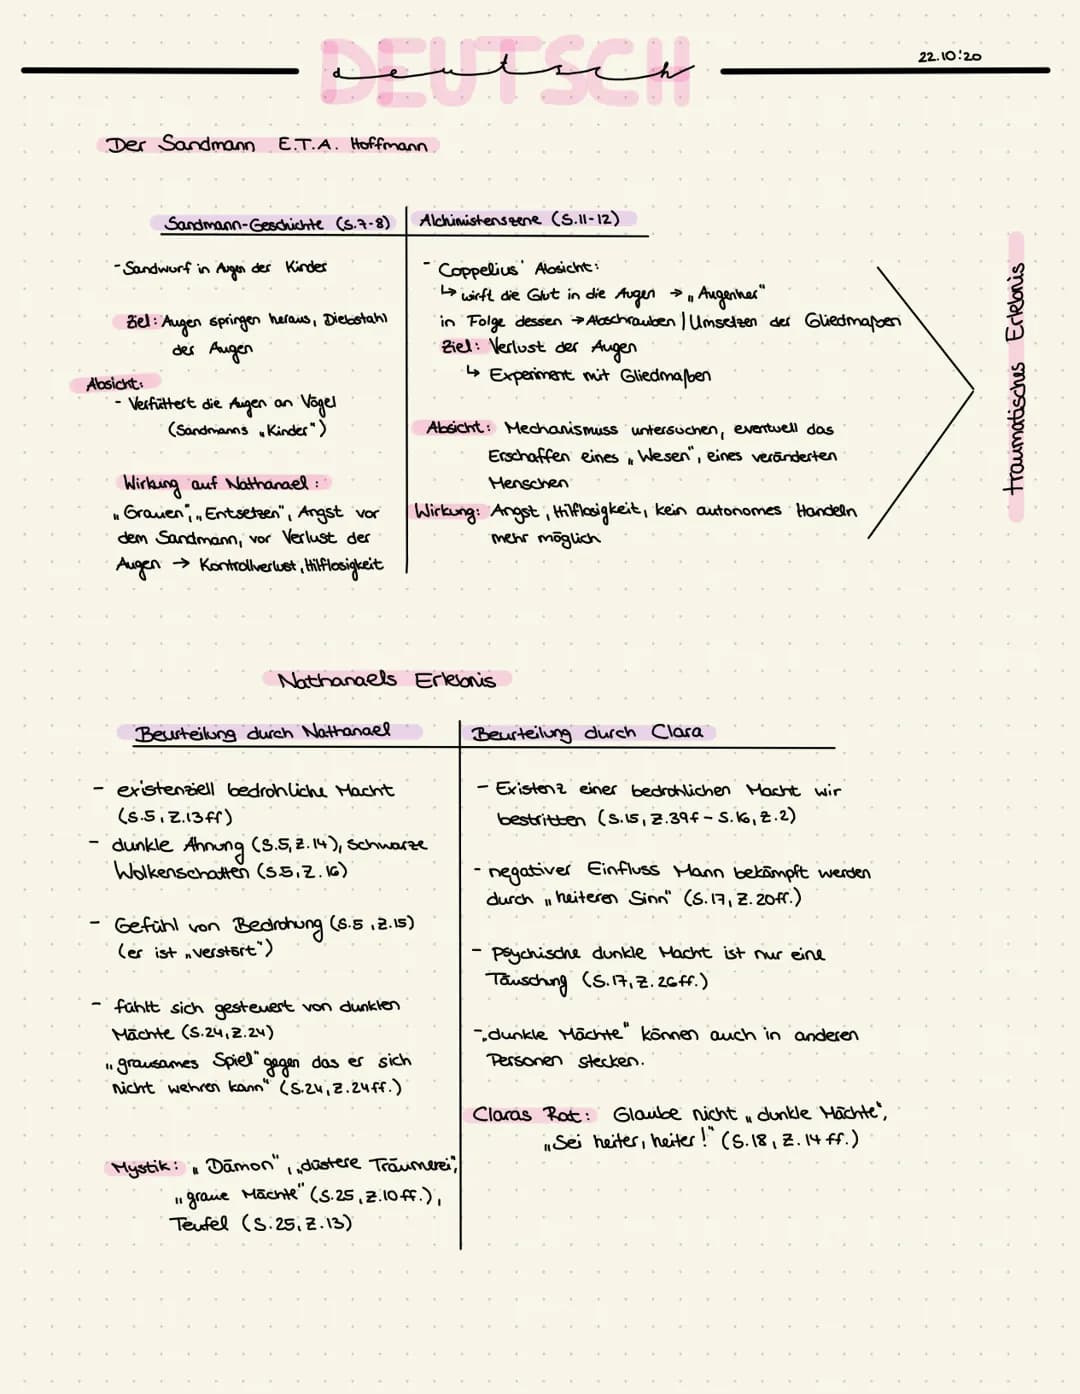 DEUTSCH
deutsch
22.10.'20
Der Sandmann E.T.A. Hoffmann
Sandmann-Geschichte (S.7-8)
- Sandwurf in Augen der Kinder
Ziel: Augen springen heraus, Diebstahl
der Augen
Absicht:
- Verfüttert die Augen an Vögel
(Sandmanns „Kinder")
Wirkung auf Nathanael:
„Grauen", „Entsetzen", Angst vor
dem Sandmann, vor Verlust der
Augen → Kontrollverlust, Hilflosigkeit
Alchimistenszene (S.11-12)
- Coppelius' Absicht:
↳ wirft die Glut in die Augen → „Augenher"
in Folge dessen → Abschrauben | Umsetzen der Gliedmaßen
Ziel: Verlust der Augen
↳ Experiment mit Gliedmaßen
Absicht: Mechanismuss untersuchen, eventuell das
Erschaffen eines „Wesen", eines veränderten
Menschen
Wirkung: Angst, Hilflosigkeit, kein autonomes Handeln
mehr möglich
traumatisches Erlebnis
Nathanaels Erlebnis
Beurteilung durch Nathanael
- existenziell bedrohliche Macht
(S.5, Z.13ff)
- dunkle Ahnung (S.5, Z.14), schwarze
Wolkenschatten (S.5, Z.16)
- Gefühl von Bedrohung (S.5, Z.15)
(er ist „verstört")
- fühlt sich gesteuert von dunklen
Mächte (S.24, Z.24)
„grausames Spiel" gegen das er sich
nicht wehren kann" (S.24, Z.24ff.)
Mystik: „Dämon", „düstere Träumerei",
„graue Mächte" (S.25, Z.10ff.),
Teufel (S.25, Z.13)
Beurteilung durch Clara
- Existenz einer bedrohlichen Macht wir
bestritten (S.15, Z.39f - S.16, Z.2)
- negativer Einfluss Mann bekämpft werden
durch „heiteren Sinn" (S.17, Z.20ff.)
- Psychische dunkle Macht ist nur eine
Täuschung (S.17, Z.26ff.)
- „dunkle Mächte" können auch in anderen
Personen stecken.
Claras Rat: Glaube nicht „dunkle Mächte",
„Sei heiter, heiter!" (S.18, Z.14ff.)